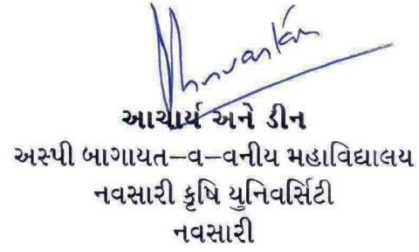 આચાર્ય અને ડીન
અસ્પી બાગાયત–વ–વનીય મહાવિદ્યાલય
નવસારી કૃષિ યુનિવર્સિટી
નવસારી